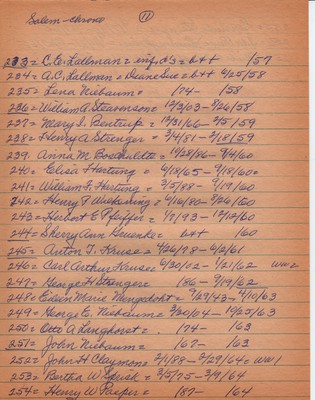 Salem - chrono (11)
233 = C.E. Lallman = inf. d's = b+t 157
234 = A.C. Lallmen = Duane Sue = b+t 6/25/58
235 = Lena Niebaum = 174 - 158
236 = William A. Stevenson = 12/3/03 - 9/26/58
237 = Mary I. Pentrup = 12/31/66 - 3/5/59
238 = Henry A. Strenger = 3/4/81 - 3/18/59
239. Anna M. 10/28/86 - 9/4/60
240 = Elisa Hartung = 6/18/65 - 9/18/60 =
241 = William F. Hartung = 3/5/88 - 7/19/60
242 = Henry F. 4/16/80 - 9/26/60
243 = Herbert E. Pfeffer = 1/7/93 - 12/12/60
244 = Sherry Ann b+t 160
245 = Anton T. Kruse = 4/26/78 - 6/2/61
246 = Carl Arthur Kruse = 6/30/02 - 1/21/62 WW 2
247 = George H Strenger = 186 - 9/19/62
248 = Edwin Marie 9/29/43 - 4/10/63
249 = George E. Niebaum = 3/20/04 - 10/25/63
250 = Otto A. Langhorst = 174 - 163
251 = John Niebaum = 167 - 163
252 = John H Claymon = 3/1/88 - 3/29/64 = WW 1
253 = Bertha W. 3/5/75 - 3/19/64
254 = Henry W. Paeper = 187 - 164